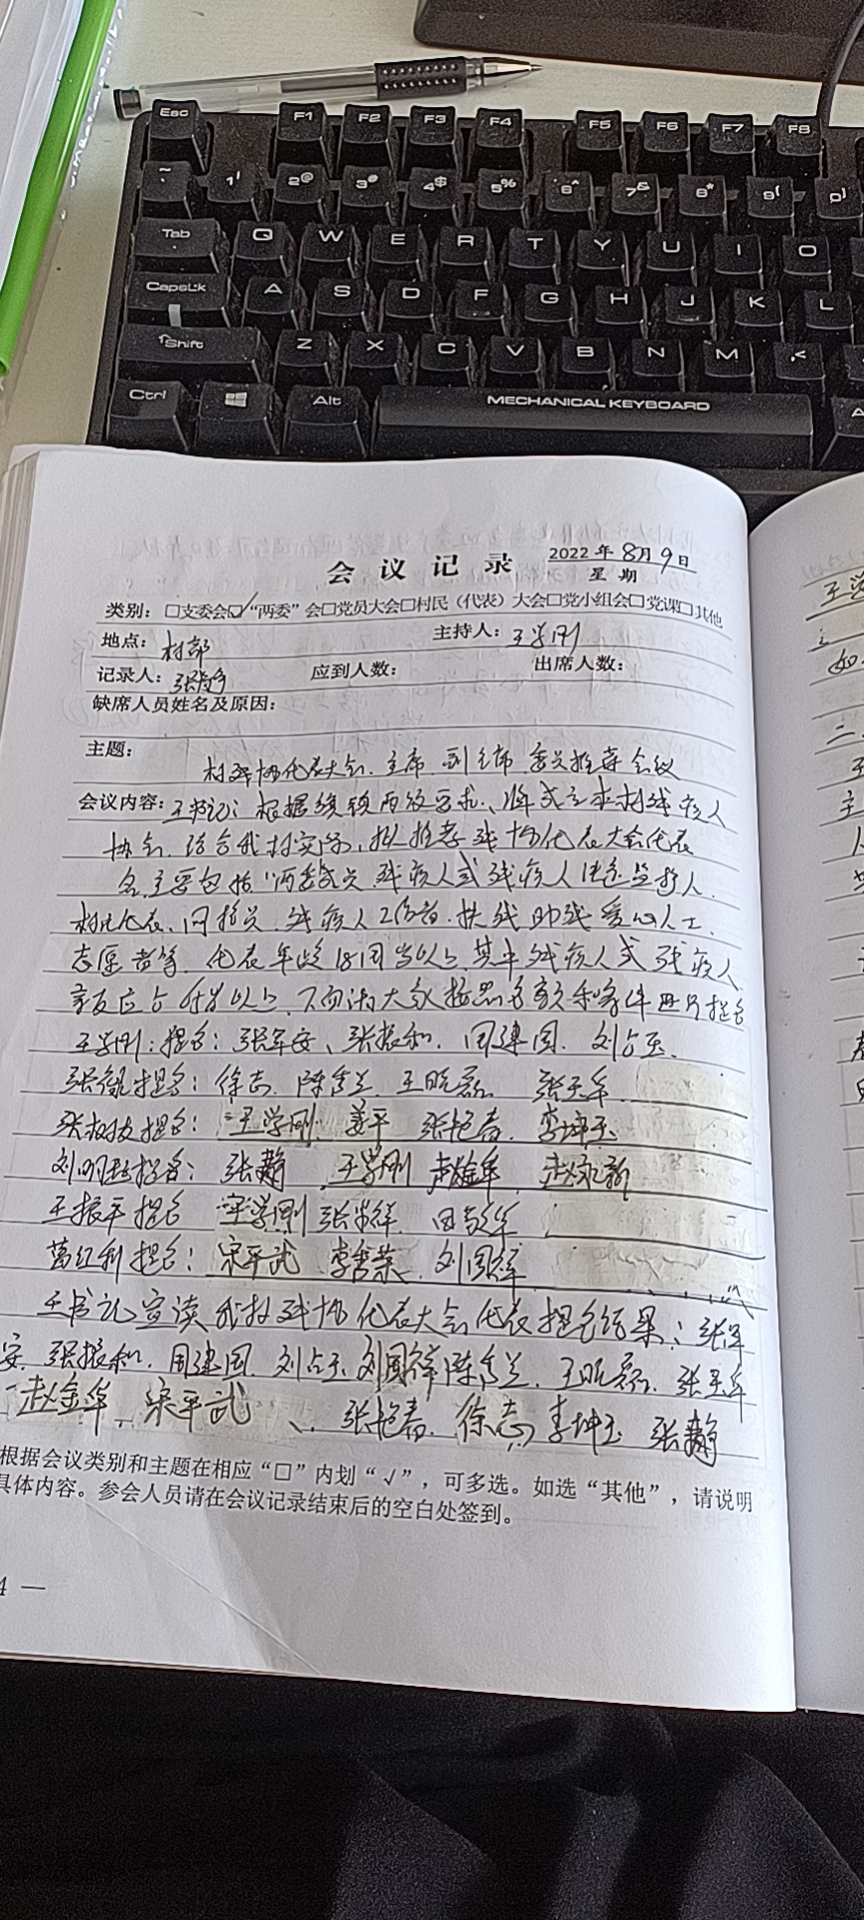 Esc F1 F2 F3 F4 F5 F6 F7 F8
~ 1! 2@ 3# 4$ 5% 6^ 7& 8* 9( 0)
Tab Q W E R T Y U I O
CapsLk A S D F G H J K L
Shift Z X C V B N M <
Ctrl Alt MECHANICAL KEYBOARD A
会议记录 2022年8月9日
星期
类别：□支委会☑“两委”会□党员大会□村民（代表）大会□党小组会□党课□其他
地点：村部 主持人：王学刚
记录人：张 应到人数： 出席人数：
缺席人员姓名及原因：
主题：
村残协代表大会、主席、副主席、委员推荐会议
会议内容：王书记：根据县镇两级要求，将成立本村残疾人
协会，结合我村实际，拟推荐残协代表大会代表
名，主要包括“两委成员、残疾人或残疾人法定监护人、
村民代表、网格员、残疾人工作者、扶残助残爱心人士、
志愿者等，代表年龄18周岁以上，其中残疾人或残疾人
亲友应占 以上，下面请大家按照名额和条件进行提名
王学刚：提名：张军安、张振和、周建国、刘占玉、
张 提名：徐志、陈 兰、王晓磊、张玉华
张 提名：王学刚、姜平、张艳春、李坤玉
刘明 提名：张静、王学刚、赵金华、赵永新
王振平提名 王学刚 张 祥、田 华
葛红利提名：宋平武 李 荣、刘国祥
王书记宣读我村残协代表大会代表提名结果：张军
安、张振和、周建国、刘占玉、刘国祥、陈 兰、王晓磊、张玉华
赵金华、宋平武、张艳春、徐志、李坤玉 张静
根据会议类别和主题在相应“□”内划“√”，可多选。如选“其他”，请说明
具体内容。参会人员请在会议记录结束后的空白处签到。
4 —